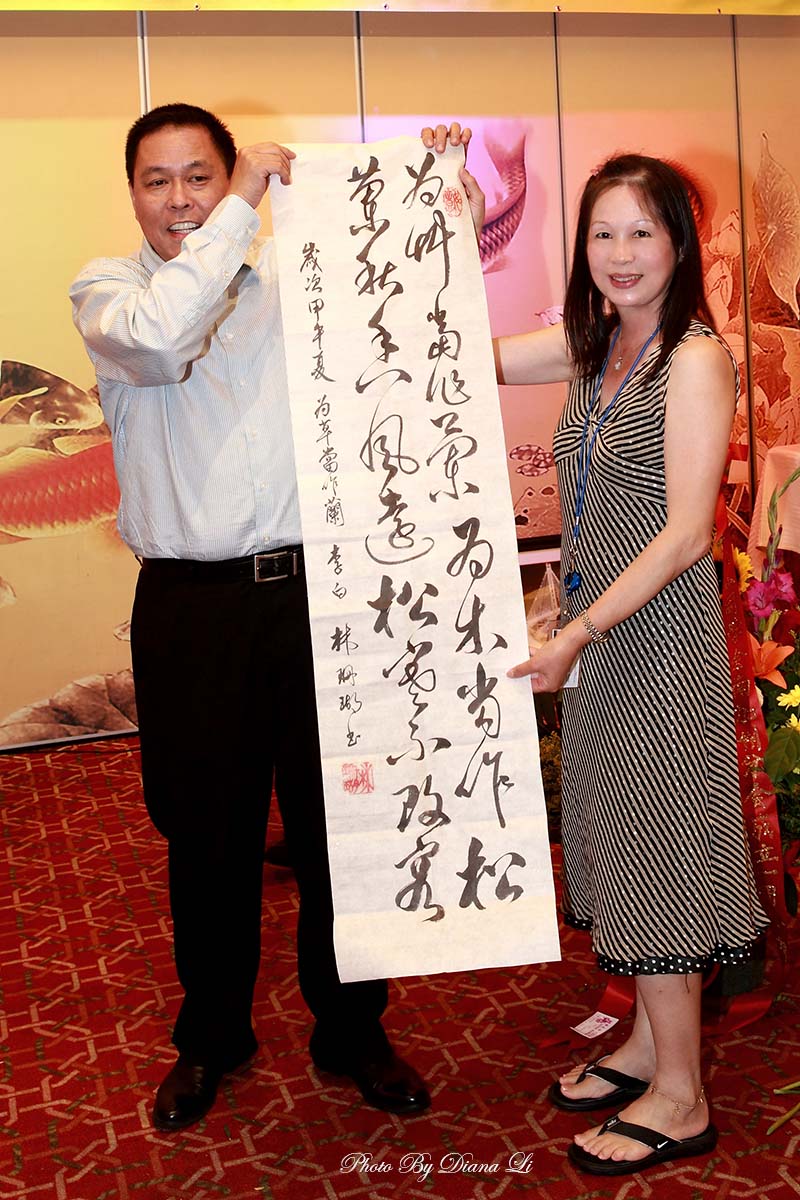 为艸當作蘭为木當作松
蘭秋香風遠松寒不改容
歲次甲午夏 为草當作蘭 李白 林珊瑚书
Photo By Diana Li